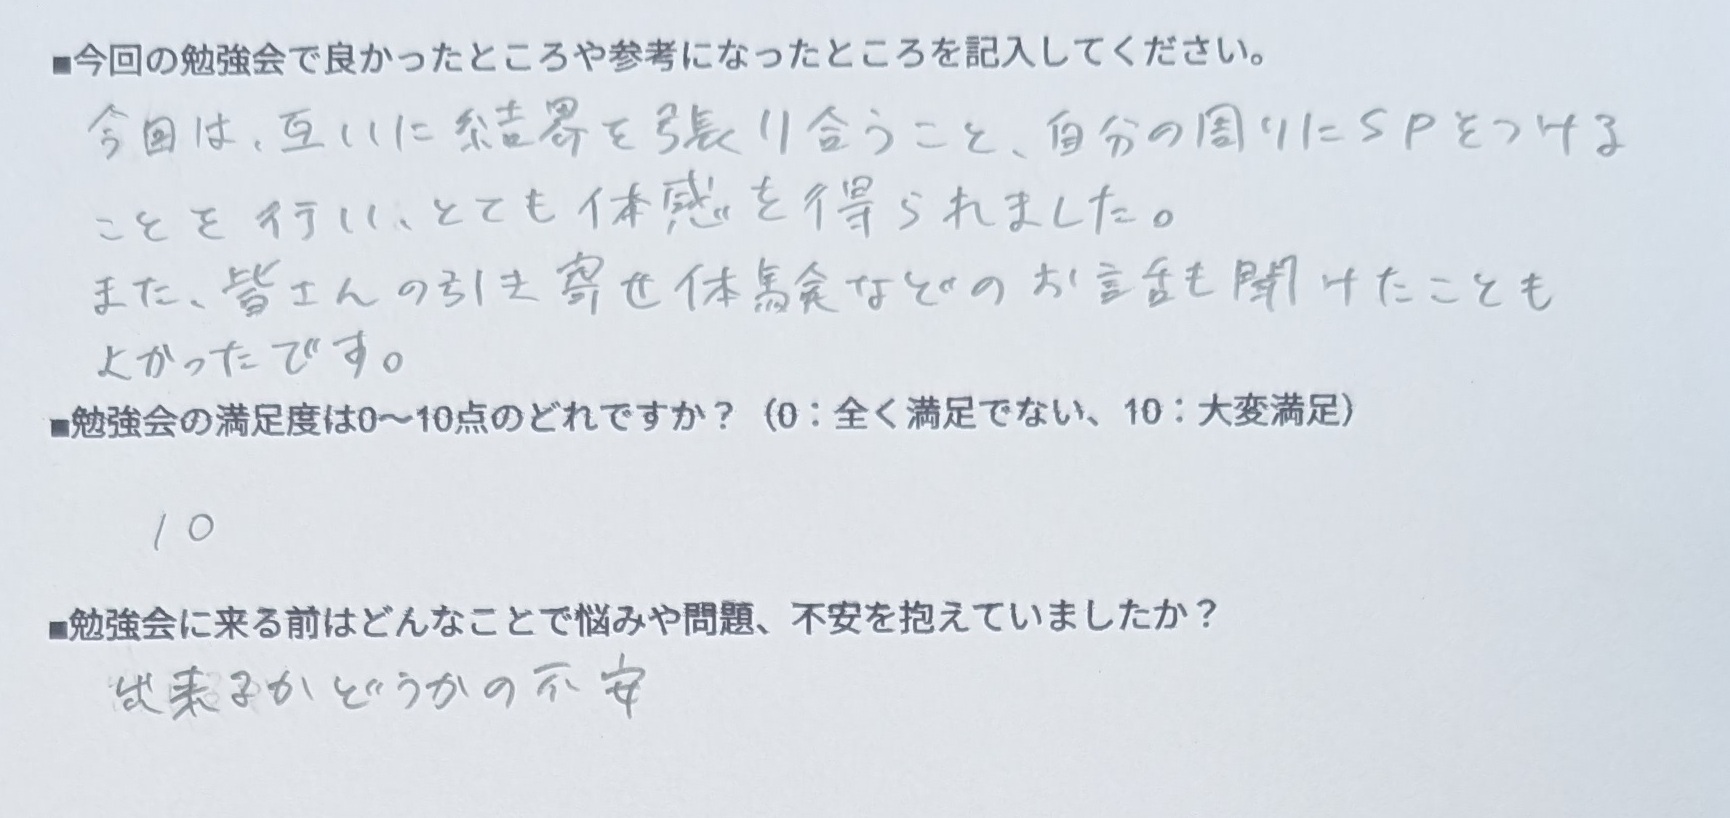 ■今回の勉強会で良かったところや参考になったところを記入してください。
今回は、互いに結界を張り合うこと、自分の周りにSPをつける
ことを行い、とても体感を得られました。
また、皆さんの引き寄せ体験などのお話も聞けたことも
よかったです。
■勉強会の満足度は0〜10点のどれですか？（0：全く満足でない、10：大変満足）
10
■勉強会に来る前はどんなことで悩みや問題、不安を抱えていましたか？
出来るかどうかの不安